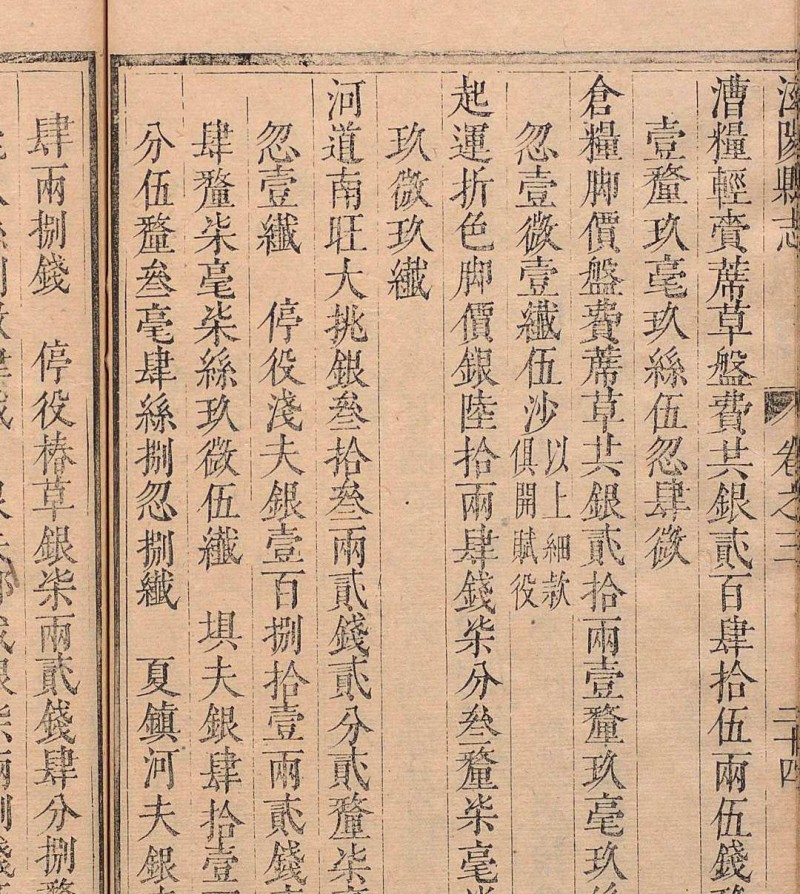 陽縣志 卷之三 二十四
漕糧輕賫蓆草盤費共銀貳百肆拾伍兩伍錢
壹釐玖毫玖絲伍忽肆微
倉糧脚價盤費蓆草共銀貳拾兩壹釐玖毫玖
忽壹微壹纖伍沙 以上細款
俱開賦役
起運折色脚價銀陸拾兩肆錢柒分叁釐柒毫柒
玖微玖纖
河道南旺大挑銀叁拾叁兩貳錢貳分貳釐柒
忽壹纖 停役淺夫銀壹百捌拾壹兩貳錢
肆釐柒毫柒絲玖微伍纖 埧夫銀肆拾壹
分伍釐叁毫肆絲捌忽捌纖 夏鎮河夫銀
肆兩捌錢 停役樁草銀柒兩貳錢肆分捌釐